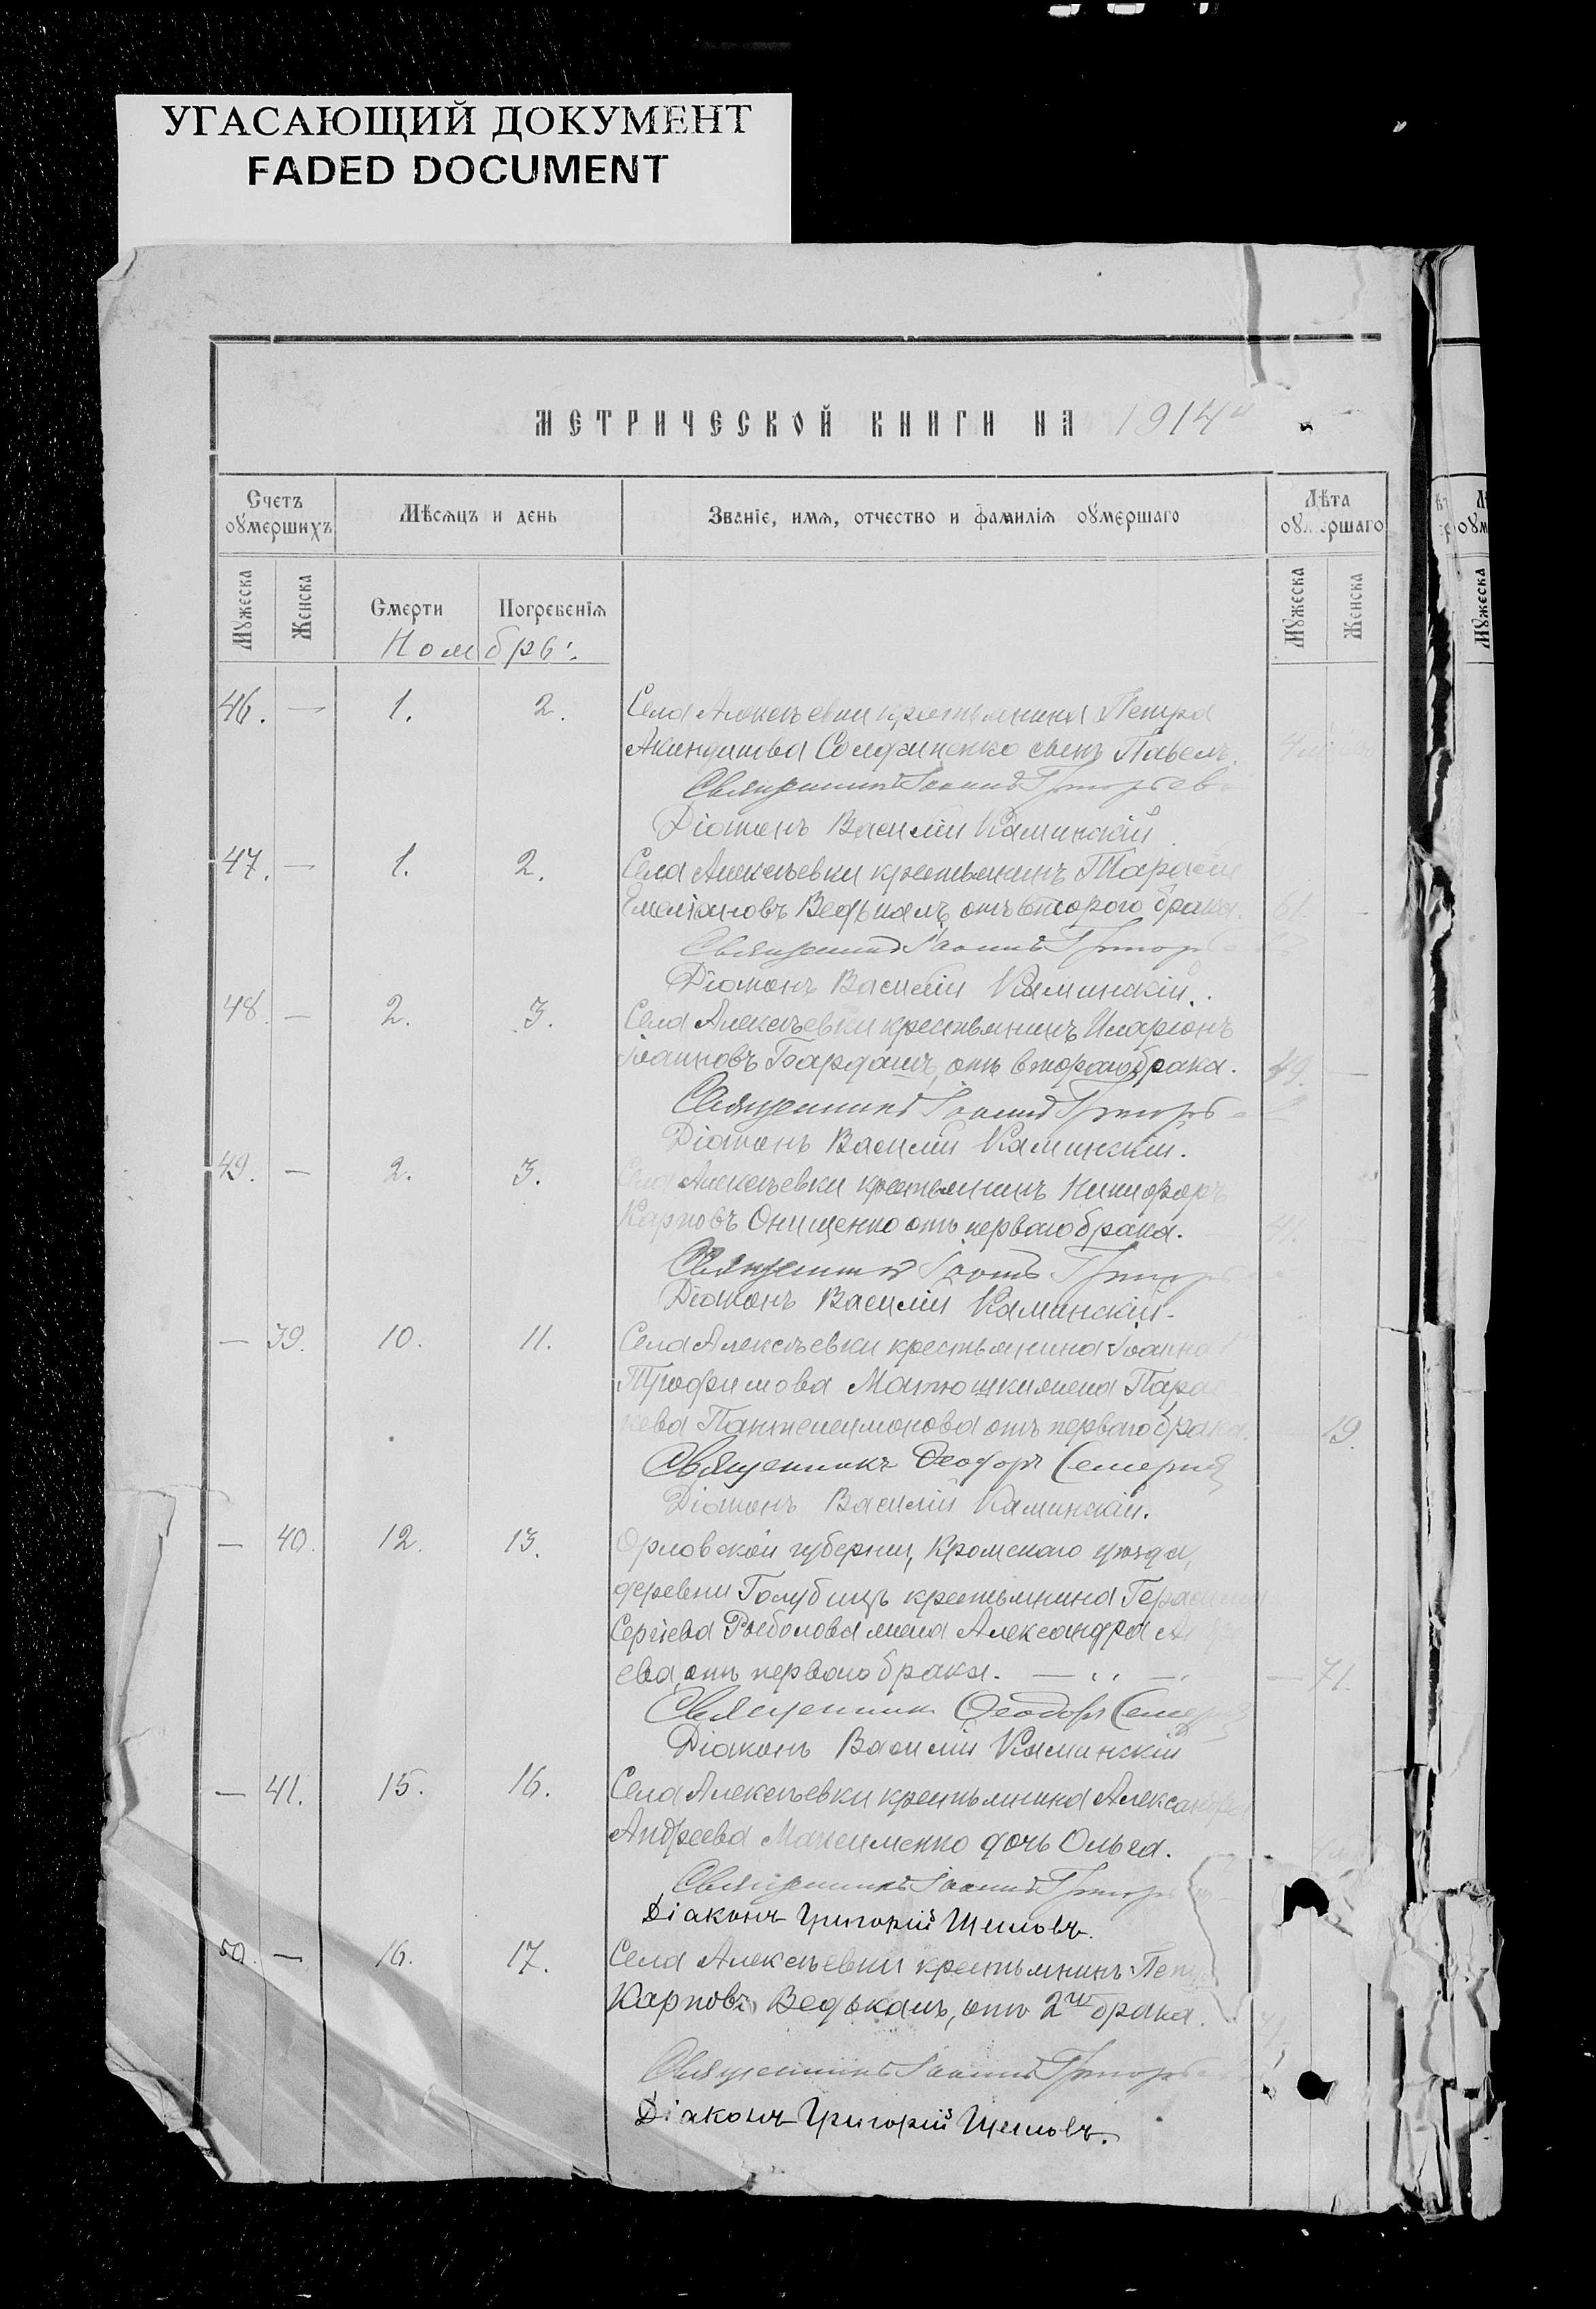 УГАСАЮЩИЙ ДОКУМЕНТ
FADED DOCUMENT
МЕТРИЧЕСКОЙ КНИГИ НА 1914
Счетъ оумершихъ
Мѣсяцъ и день
Званіе, имя, отчество и фамилія оумершаго
Лѣта оумершаго
Мужеска
Женска
Смерти
Погребенія
Мужеска
Женска
Мужеска
Ноябрь.
46. — 1. 2. Села Алексѣевки крестьянина Петра
сынъ Павелъ.
Священникъ Іоаннъ Григорьев
Діаконъ Василій Каминскій
47. — 1. 2. Села Алексѣевки крестьянинъ Тарасій
Емеліановъ Ведькалъ, отъ второго брака. 61. —
Священникъ Іоаннъ Григорь
Діаконъ Василій Каминскій.
48. — 2. 3. Села Алексѣевки крестьянинъ Иларіонъ
Іоанновъ Бардашъ, отъ второго брака. 49. —
Священникъ Іоаннъ Григорь
Діаконъ Василій Каминскій.
49. — 2. 3. Села Алексѣевки крестьянинъ Никифоръ
Карповъ Онищенко отъ перваго брака. 41.
Священникъ Іоаннъ Григорь
Діаконъ Василій Каминскій.
— 39. 10. 11. Села Алексѣевки крестьянина Іоанна
Трофимова Матюшки жена Парас
кева Пантелеимонова отъ перваго брака. 19.
Священникъ Ѳеодоръ
Діаконъ Василій Каминскій.
— 40. 12. 13. Орловской губерніи, Кромскаго уѣзда,
деревни Голубицъ крестьянина Герасима
Сергіева Рыболова жена Александра
ева, отъ перваго брака. — 71.
Священникъ Ѳеодоръ
Діаконъ Василій Каминскій
— 41. 15. 16. Села Алексѣевки крестьянина Александра
Андреева Максименко дочь Ольга.
Священникъ Іоаннъ Григорь
Діаконъ Григорій Шеловъ.
50. — 16. 17. Села Алексѣевки крестьянинъ Петръ
Карповъ Ведькалъ, отъ 2го брака.
Священникъ Іоаннъ Григорь
Діаконъ Григорій Шеловъ.